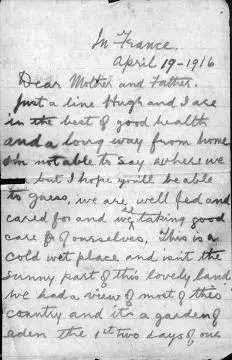 In France.
April 19-1916
Dear Mother and Father.
Just a line Hugh and I are
in the best of good health
and a long way from home
Im not able to say where we
but I hope you'll be able
to guess, we are well fed and
cared for and we'll taking good
care of ourselves, This is a
cold wet place and isnt the
sunny part of this lovely land
we had a view of most of this
country and its a garden of
eden the 1st two days of our